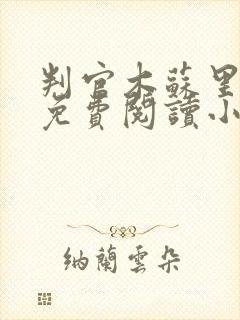 判官木蘇里
免費閱讀小
納蘭雲朵